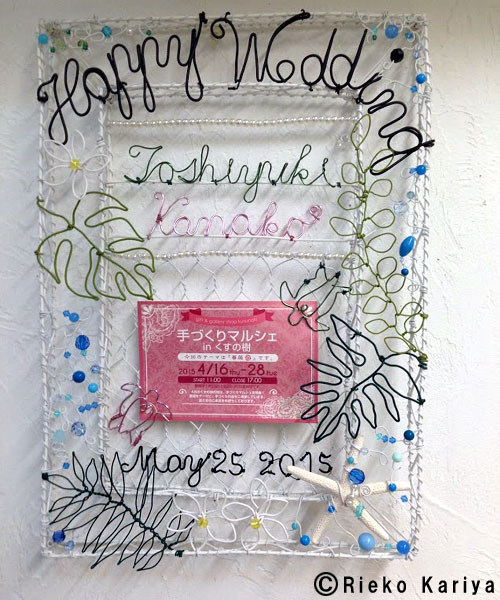 Happy Wedding
Toshiyuki
Kanako
手づくりマルシェ
in くすの樹
2015 4/16 thu - 28 tue
START 11:00 CLOSE 17:00
May 25 2015
©Rieko Kariya